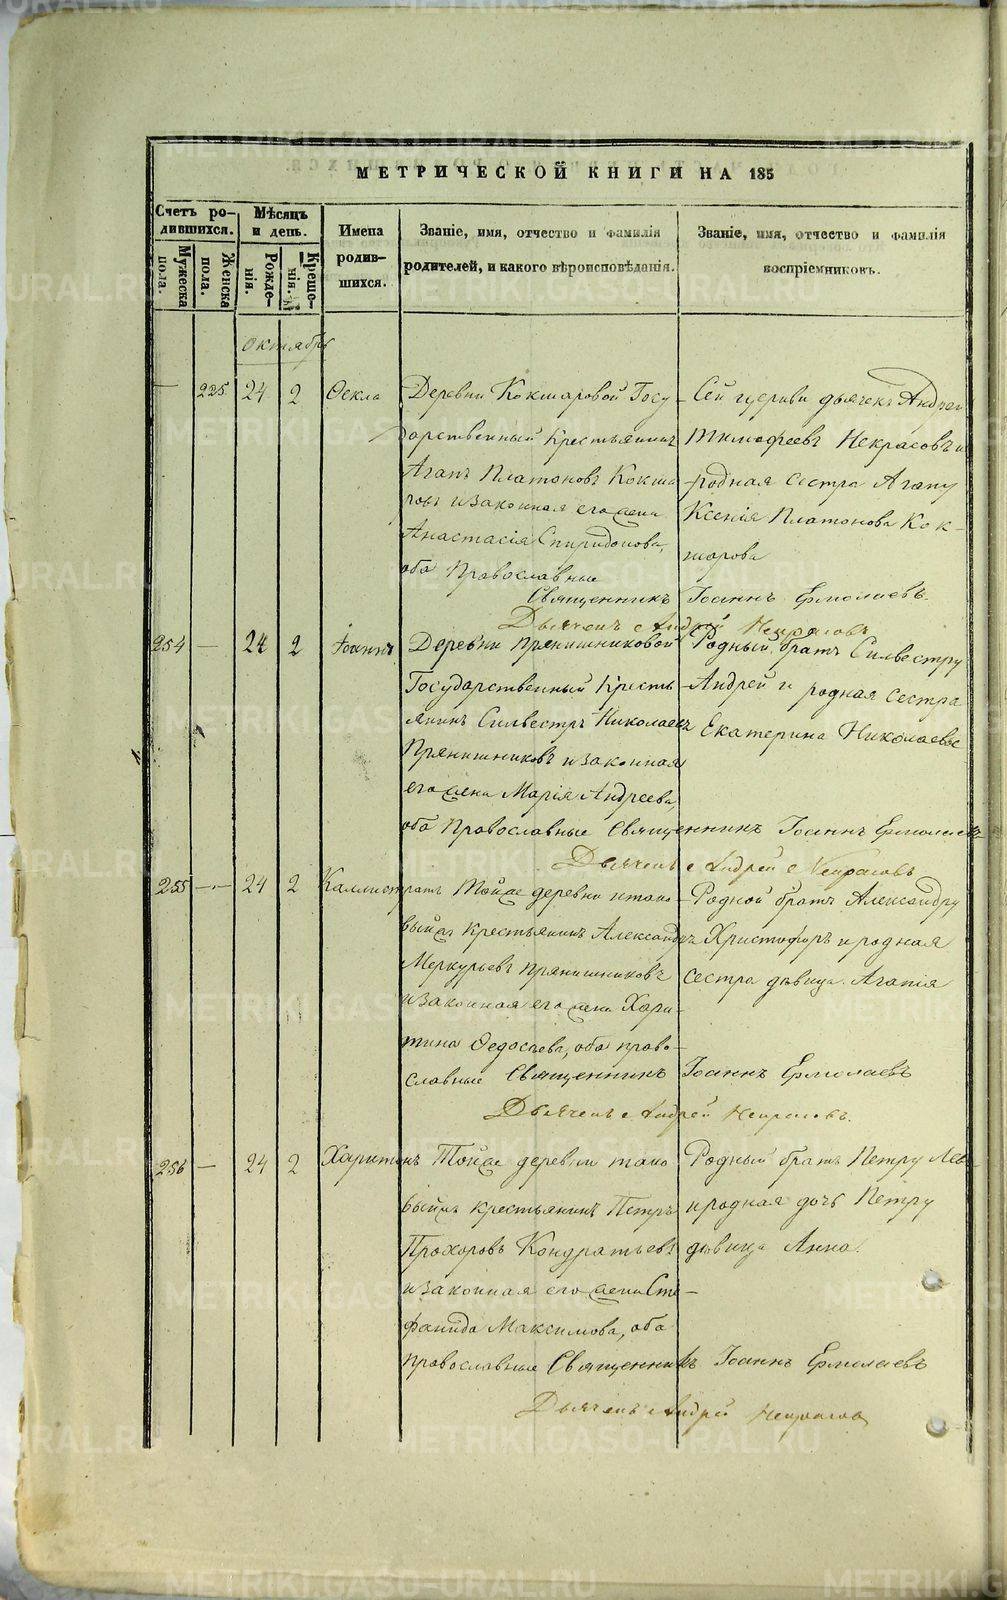 МЕТРИЧЕСКОЙ КНИГИ НА 185
Счетъ ро-
дившихся.
Мужеска пола.
Женска пола.
Мѣсяцъ и день.
Рожде-
нія.
Креще-
нія.
Имена
родив-
шихся.
Званіе, имя, отчество и фамилія
родителей, и какого вѣроисповѣданія.
Званіе, имя, отчество и фамилія
воспріемниковъ.
октябрь
— 225 24 2 Ѳекла Деревни Кокшаровой Госу- Сей церкви дьячекъ Андрей
дарственный Крестьянинъ Тимофеевъ Некрасовъ и
Агапъ Платоновъ Кокша родная сестра Агапу
ровъ и законная его жена Ксенія Платонова Кок-
Анастасія Спиридонова, шарова
оба Православные
Священникъ Іоаннъ Ермолаевъ.
Дьячекъ Андрей Некрасовъ
254 — 24 2 Іоаннъ Деревни Прянишниковой Родный братъ Силвестру
Государственный Кресть- Андрей и родная сестра
янинъ Силвестръ Николаевъ Екатерина Николаевы
Прянишниковъ и законная
его жена Марія Андреева,
оба Православные Священникъ Іоаннъ Ермолаевъ
Дьячекъ Андрей Некрасовъ
255 — 24 2 Каллистратъ Тойже деревни тако- Родной братъ Александру
выйже крестьянинъ Александръ Христофоръ и родная
Меркурьевъ Прянишниковъ сестра дѣвица Агапія
и законная его жена Хари-
тина Ѳедосѣева, оба право-
славные Священникъ Іоаннъ Ермолаевъ
Дьячекъ Андрей Некрасовъ.
256 — 24 2 Харитонъ Тойже деревни тако Родный братъ Петру Лев
выйже крестьянинъ Петръ и родная дочь Петру
Прохоровъ Кондратьевъ дѣвица Анна.
и законная его жена Сте-
фанида Максимова, оба
православные Священникъ Іоаннъ Ермолаевъ
Дьячекъ Андрей Некрасовъ
METRIKI.GASO-URAL.RU